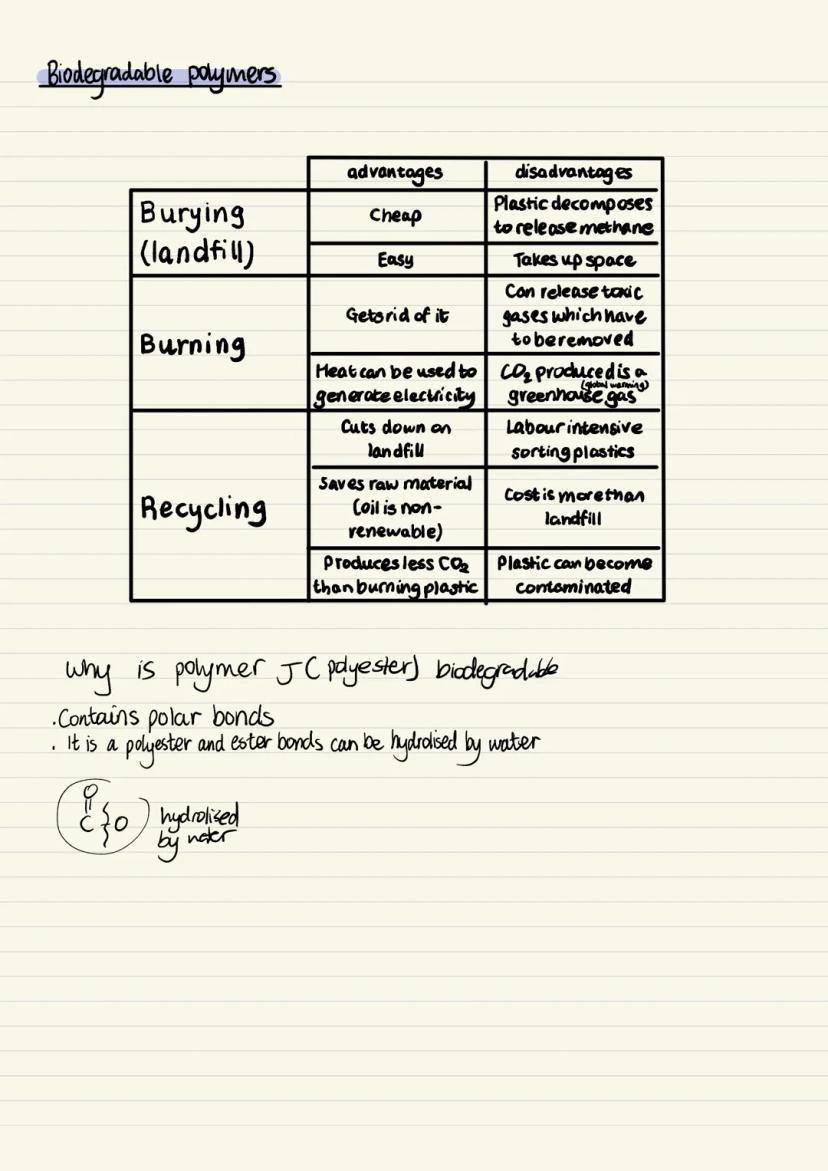 Biodegradable polymers
advantages disadvantages
Burying
(landfill)
Cheap
Plastic decomposes
to release methane
Easy
Takes up space
Burning
Gets rid of it
Can release toxic
gases which have
to be removed
Heat can be used to
generate electricity
CO₂ produced is a
(global warming)
greenhouse gas
Recycling
Cuts down on
landfill
Labour intensive
sorting plastics
Saves raw material
(oil is non-
renewable)
Cost is more than
landfill
Produces less CO₂
than burning plastic
Plastic can become
contaminated
Why is polymer J (polyester) biodegradable
. Contains polar bonds
. It is a polyester and ester bonds can be hydrolised by water
O
C O
hydrolised
by water